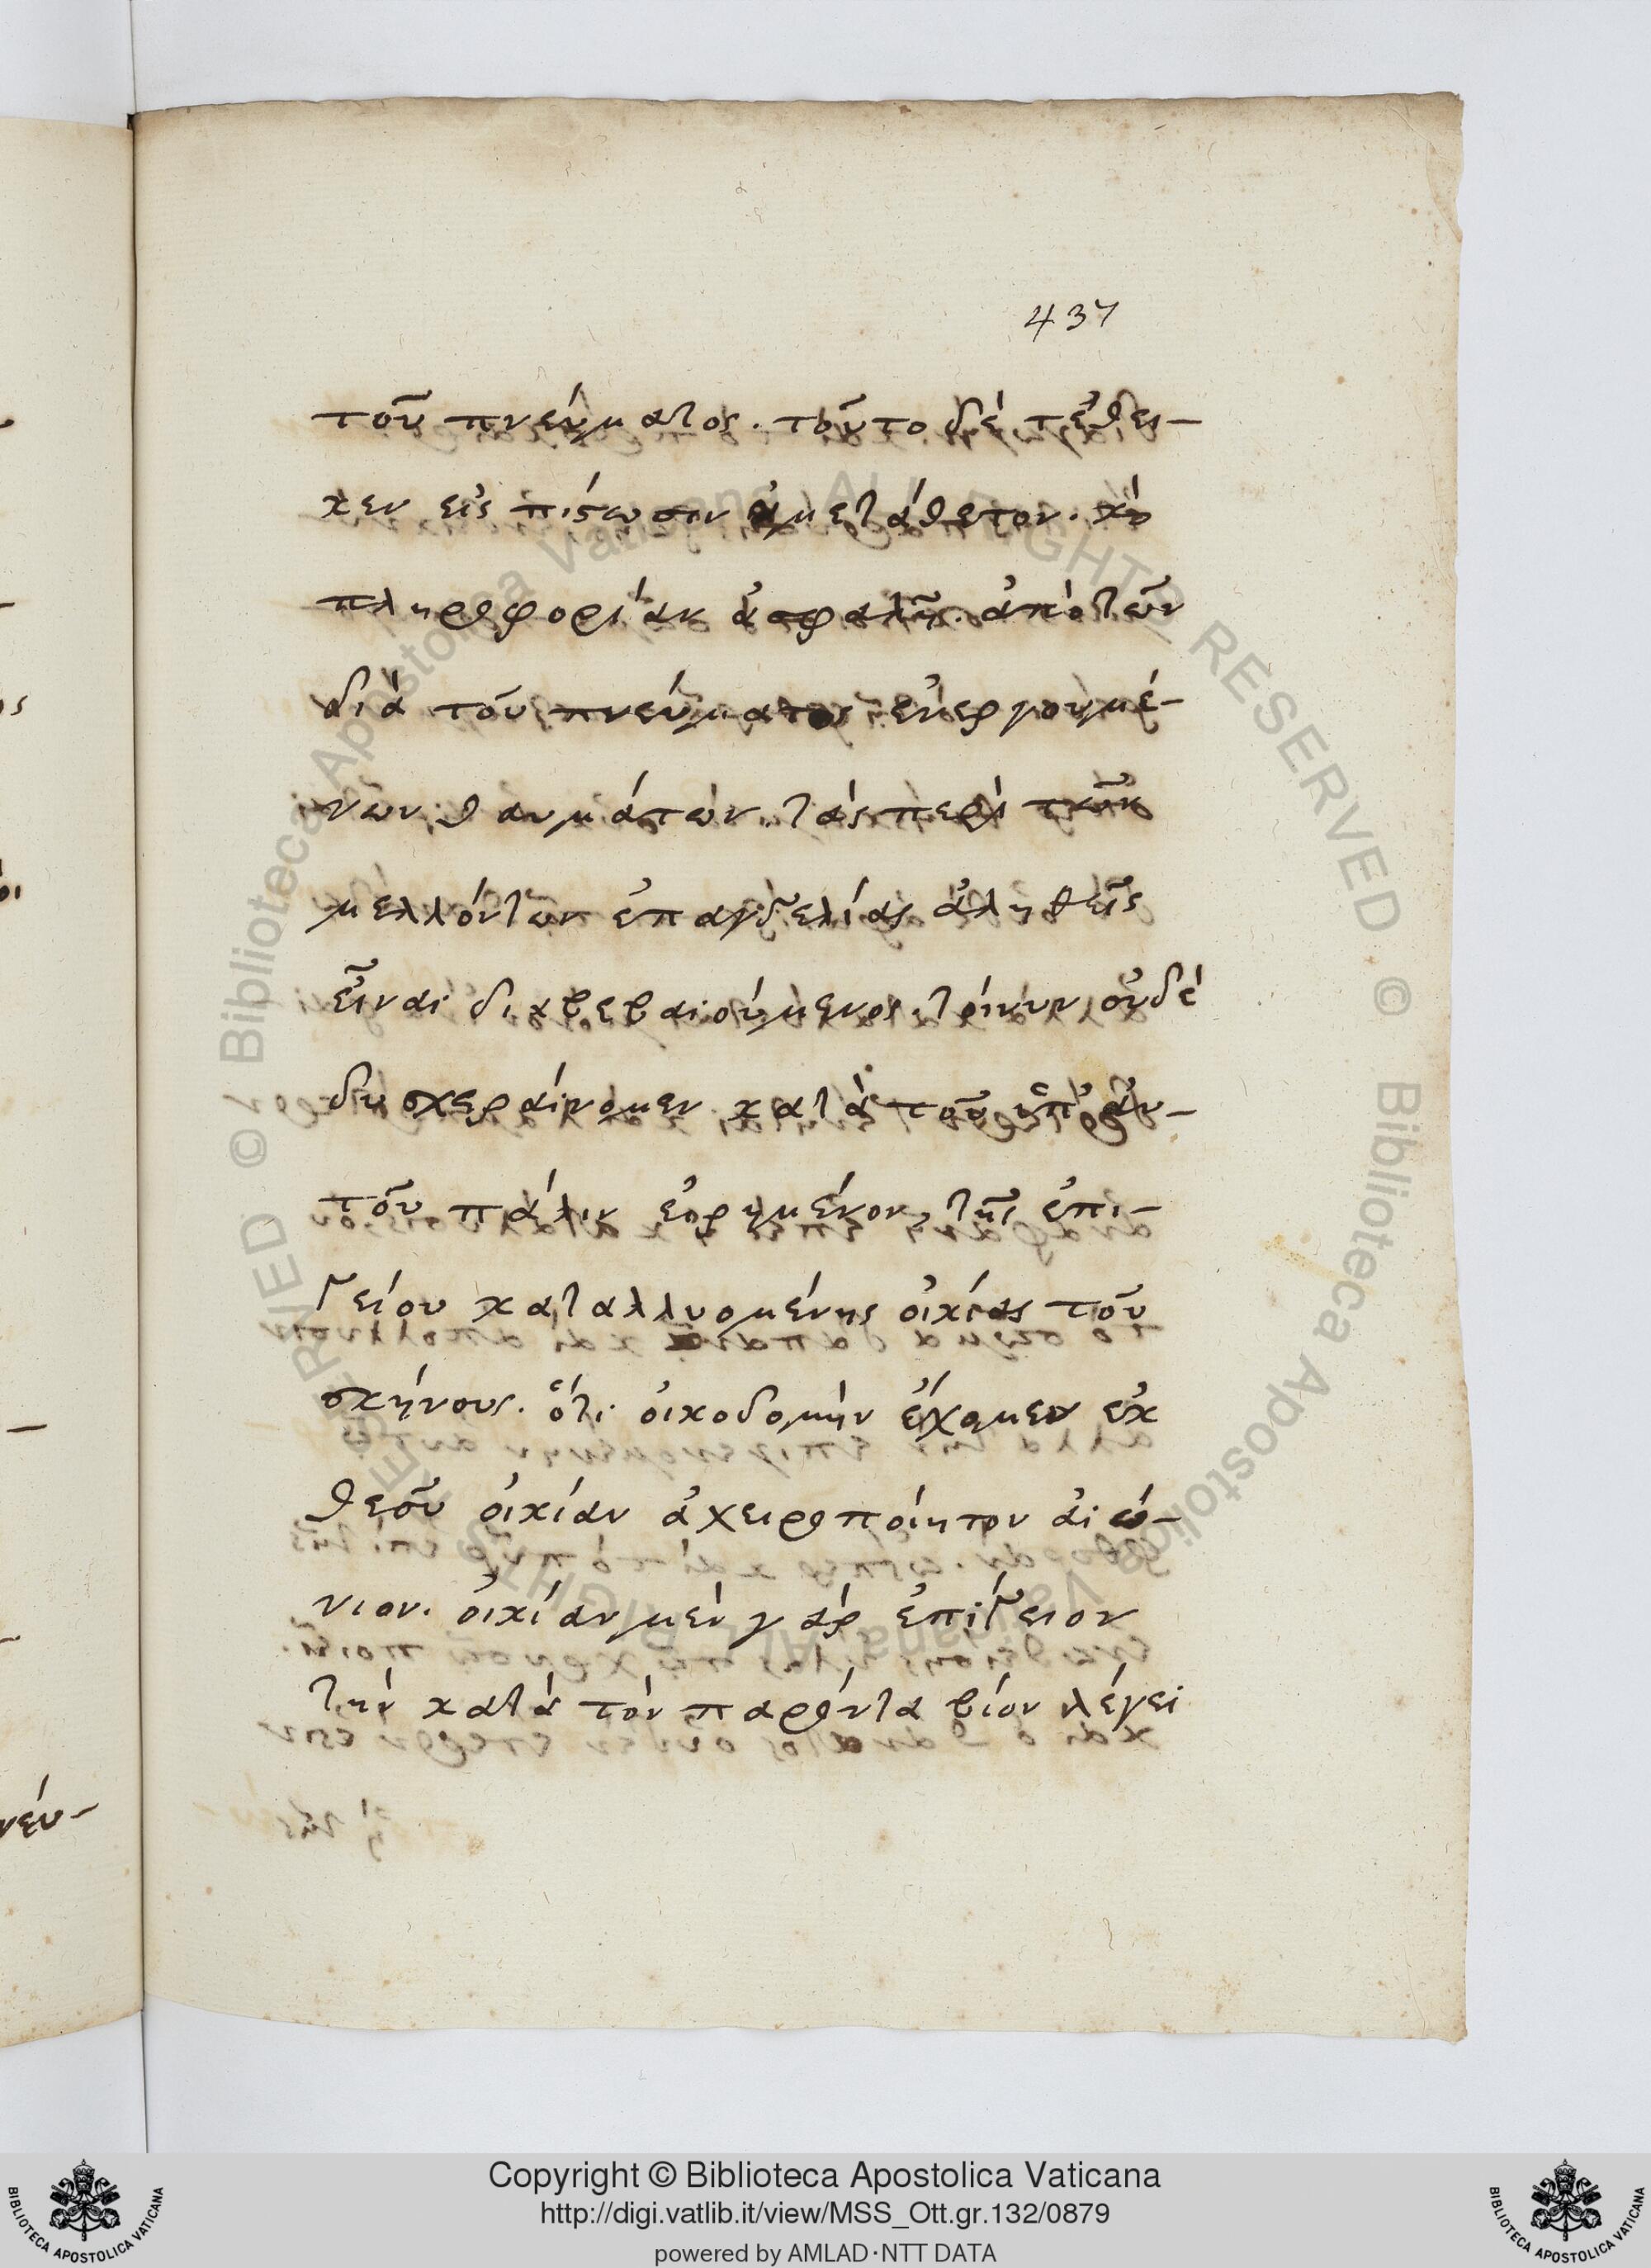 437
τοῦ πνεύματος. τοῦτο δὲ τέθει-
κεν εἰς πίστωσιν ἀμετάθετον. καὶ
πληροφορίαν ἀσφαλῆ. ἀπὸ τῶν
διὰ τοῦ πνεύματος ἐνεργουμέ-
νων θαυμάτων. τὰς περὶ τῶν
μελλόντων ἐπαγγελίας ἀληθεῖς
εἶναι διαβεβαιούμενος. τοίνυν οὐδὲ
δυσχεραίνομεν κατὰ τοῦ ὑπ' αὐ-
τοῦ πάλιν εἰρημένον, τῆς ἐπι-
γείου καταλλυομένης οἰκίας τοῦ
σκήνους. ὅτι οἰκοδομὴν ἔχομεν ἐκ
θεοῦ οἰκίαν ἀχειροποίητον αἰώ-
νιον. οἰκίαν μὲν γὰρ ἐπίγειον
τὴν κατὰ τὸν παρόντα βίον λέγει
νεύ-
© Biblioteca Apostolica Vaticana ALL RIGHTS RESERVED © Biblioteca Apostolica Vaticana ALL RIGHTS RESERVED
Copyright © Biblioteca Apostolica Vaticana
http://digi.vatlib.it/view/MSS_Ott.gr.132/0879
powered by AMLAD·NTT DATA
BIBLIOTECA APOSTOLICA VATICANA
BIBLIOTECA APOSTOLICA VATICANA